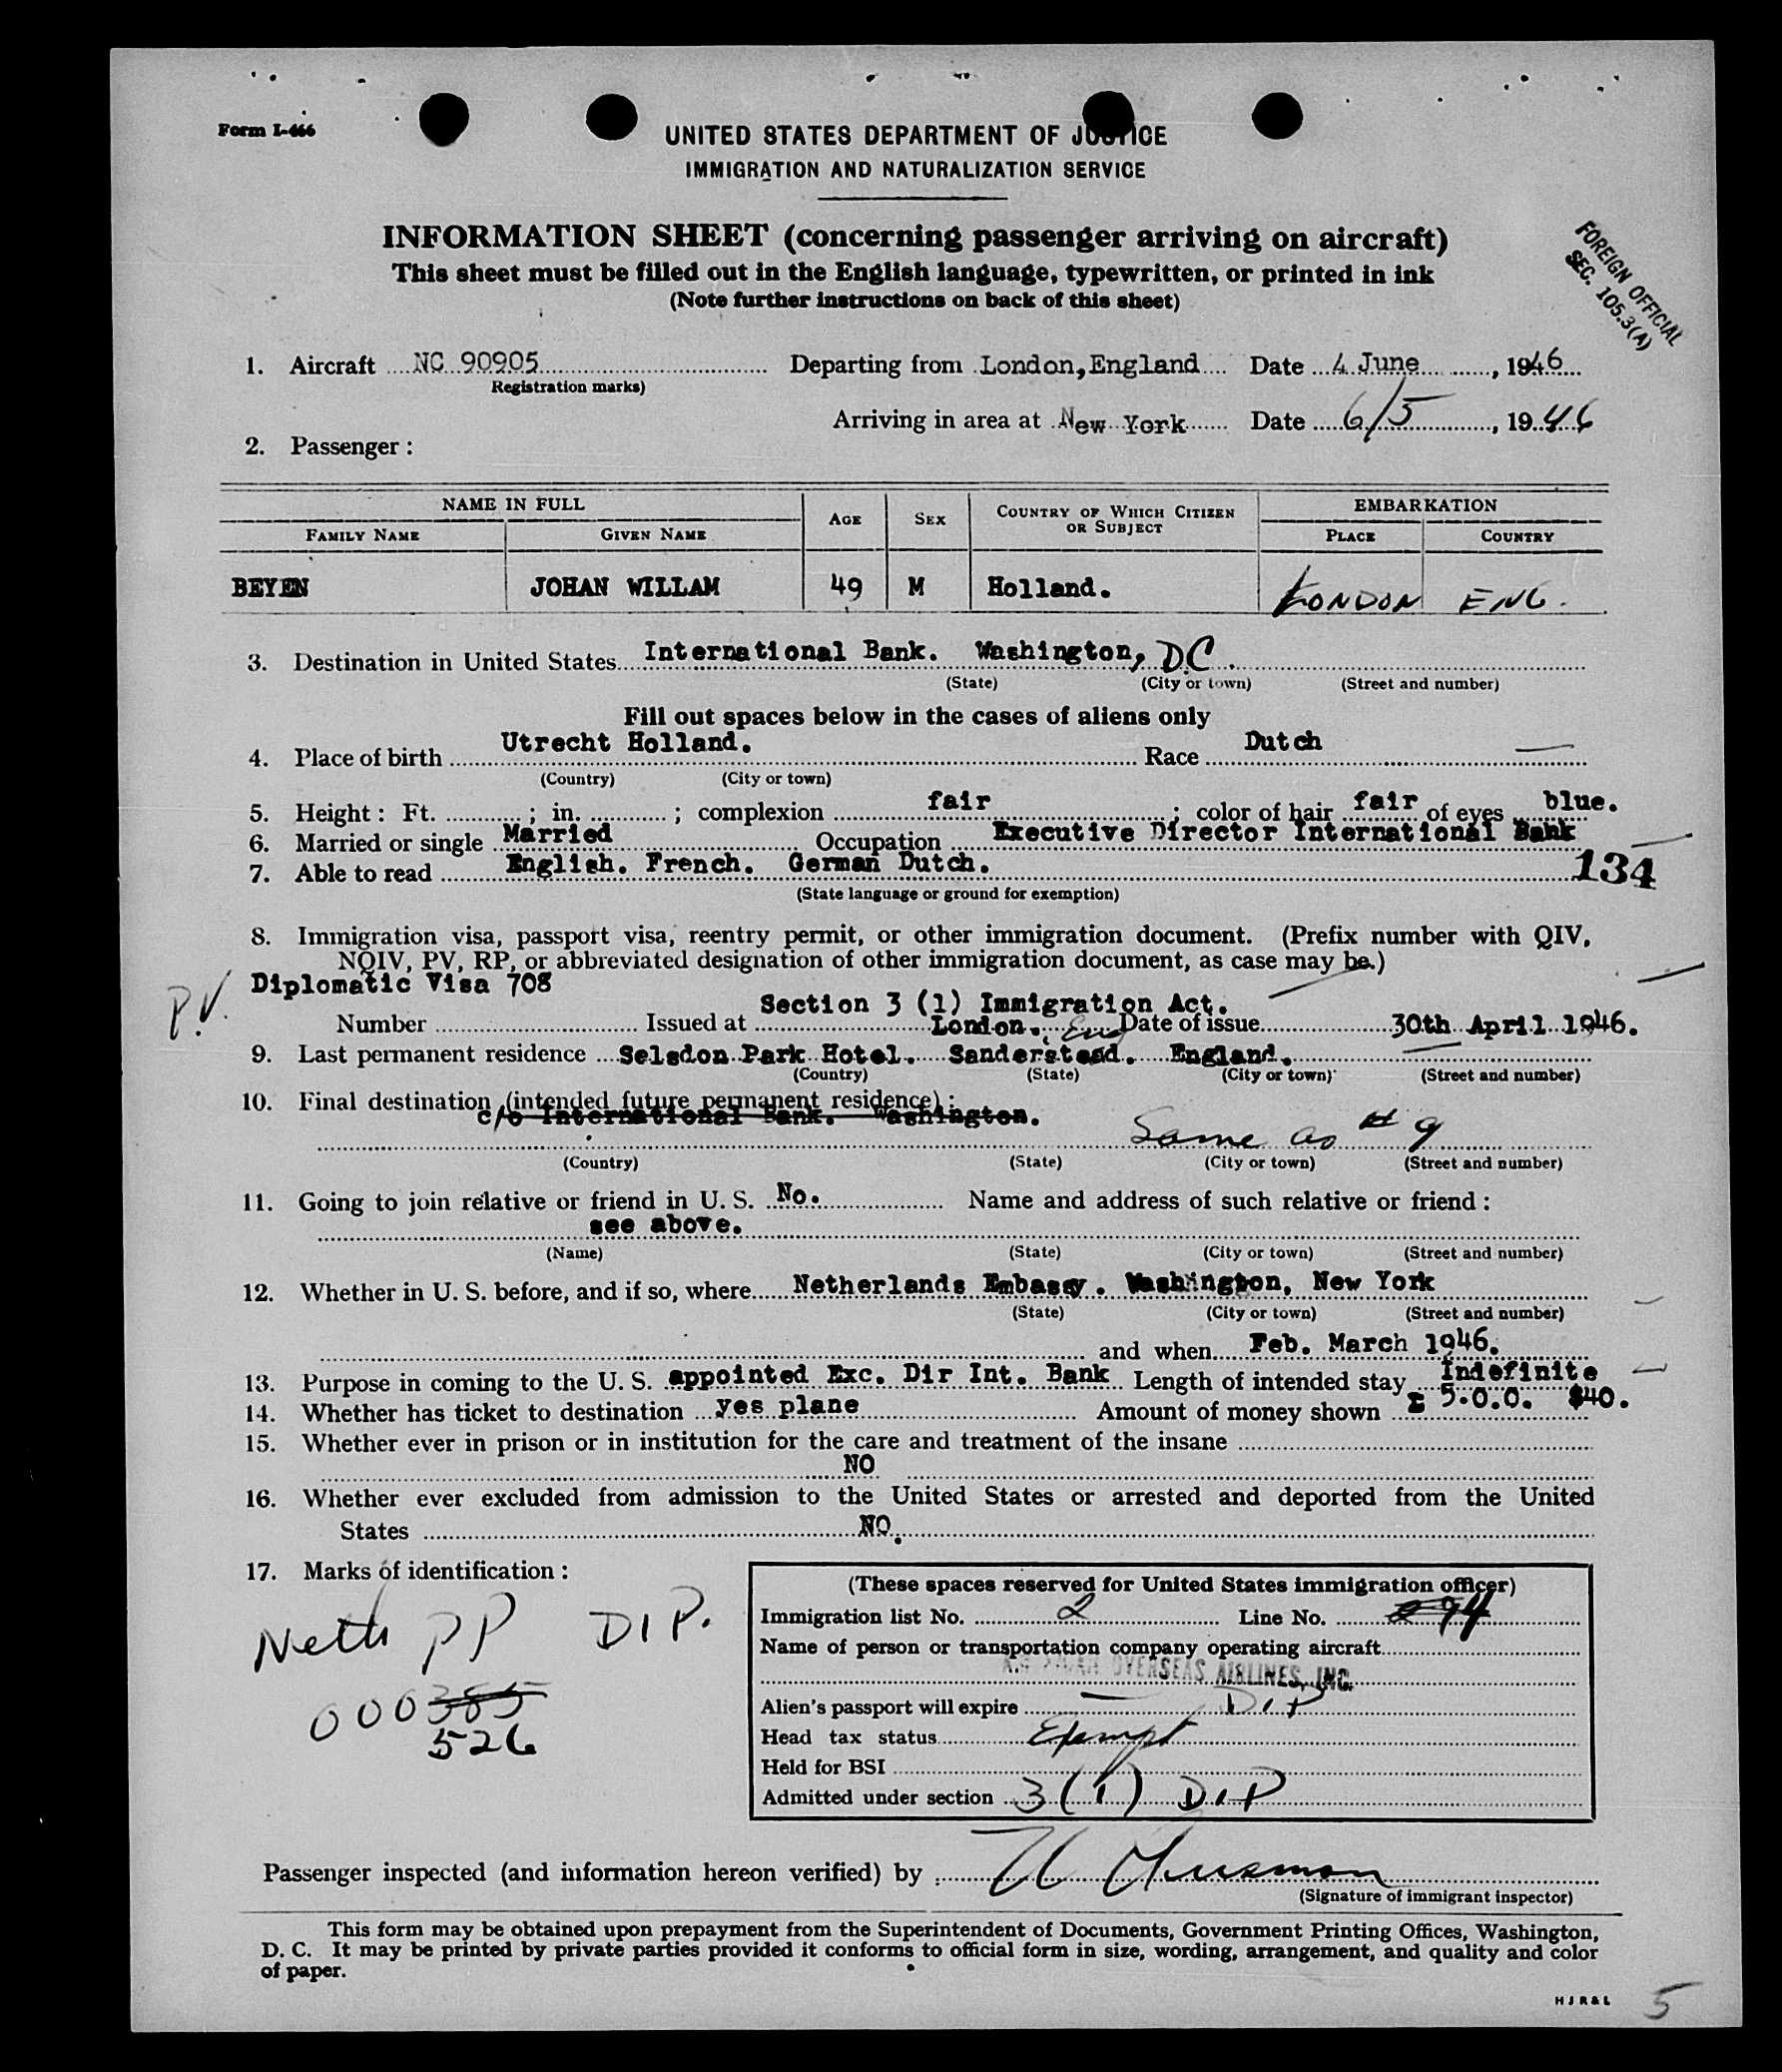 Form I-466
UNITED STATES DEPARTMENT OF JUSTICE
IMMIGRATION AND NATURALIZATION SERVICE
INFORMATION SHEET (concerning passenger arriving on aircraft)
This sheet must be filled out in the English language, typewritten, or printed in ink
(Note further instructions on back of this sheet)
FOREIGN OFFICIAL
SEC. 105.3(A)
1. Aircraft NC 90905 Departing from London, England Date 4 June, 1946
Registration marks)
Arriving in area at New York Date 6/5, 1946
2. Passenger:
NAME IN FULL AGE SEX COUNTRY OF WHICH CITIZEN OR SUBJECT EMBARKATION
FAMILY NAME GIVEN NAME PLACE COUNTRY
BEYEN JOHAN WILLAM 49 M Holland. LONDON ENG.
3. Destination in United States International Bank. Washington, DC.
(State) (City or town) (Street and number)
Fill out spaces below in the cases of aliens only
4. Place of birth Utrecht Holland. Race Dutch
(Country) (City or town)
5. Height: Ft. ; in. ; complexion fair ; color of hair fair of eyes blue.
6. Married or single Married Occupation Executive Director International Bank
7. Able to read English. French. German Dutch.
134
(State language or ground for exemption)
8. Immigration visa, passport visa, reentry permit, or other immigration document. (Prefix number with QIV,
NQIV, PV, RP, or abbreviated designation of other immigration document, as case may be.)
P.V. Diplomatic Visa 708
Section 3 (1) Immigration Act.
Number Issued at London. Eng Date of issue 30th April 1946.
9. Last permanent residence Selsdon Park Hotel. Sanderstead. England.
(Country) (State) (City or town) (Street and number)
10. Final destination (intended future permanent residence):
c/o International Bank. Washington.
Same as # 9
(Country) (State) (City or town) (Street and number)
11. Going to join relative or friend in U. S. No. Name and address of such relative or friend:
see above.
(Name) (State) (City or town) (Street and number)
12. Whether in U. S. before, and if so, where Netherlands Embassy. Washington, New York
(State) (City or town) (Street and number)
and when Feb. March 1946.
13. Purpose in coming to the U. S. appointed Exc. Dir Int. Bank Length of intended stay Indefinite
14. Whether has ticket to destination yes plane Amount of money shown £ 5.0.0. $40.
15. Whether ever in prison or in institution for the care and treatment of the insane
NO
16. Whether ever excluded from admission to the United States or arrested and deported from the United
States NO.
17. Marks of identification:
Neth PP DIP.
000385
526
(These spaces reserved for United States immigration officer)
Immigration list No. 2 Line No. 94
Name of person or transportation company operating aircraft
OVERSEAS AIRLINES, INC.
Alien's passport will expire — DIP
Head tax status Exempt
Held for BSI
Admitted under section 3 (1) DIP
Passenger inspected (and information hereon verified) by
(Signature of immigrant inspector)
This form may be obtained upon prepayment from the Superintendent of Documents, Government Printing Offices, Washington,
D. C. It may be printed by private parties provided it conforms to official form in size, wording, arrangement, and quality and color
of paper.
H J R & L 5